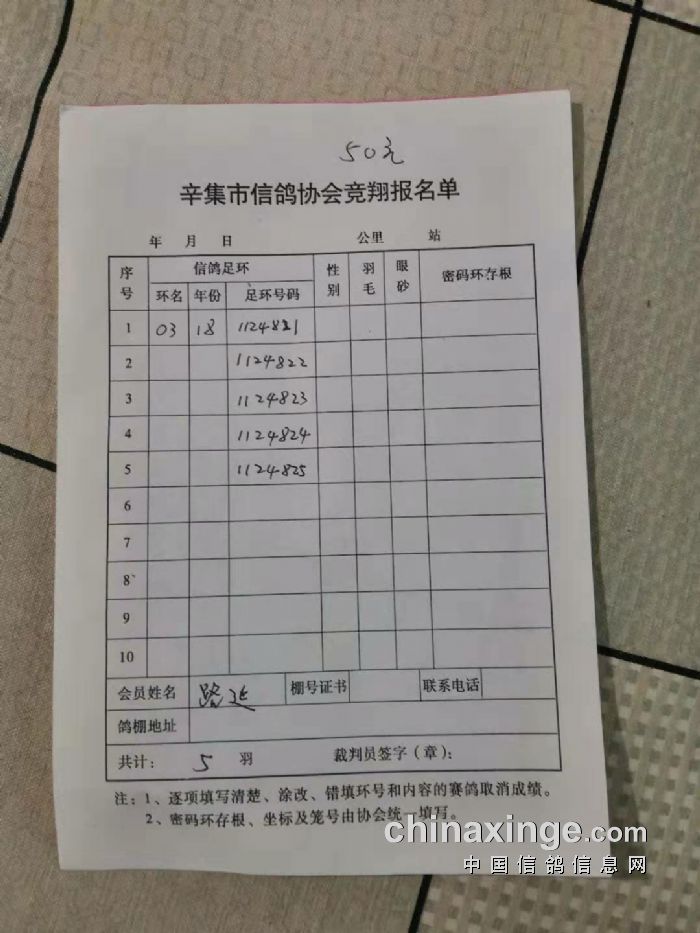 50元
辛集市信鸽协会竞翔报名单
年 月 日 公里 站
序号 信鸽足环 性别 羽毛 眼砂 密码环存根
环名 年份 足环号码
1 03 18 1124821
2 1124822
3 1124823
4 1124824
5 1124825
6
7
8
9
10
会员姓名 路延 棚号证书 联系电话
鸽棚地址
共计： 5 羽 裁判员签字（章）：
注：1、逐项填写清楚、涂改、错填环号和内容的赛鸽取消成绩。
2、密码环存根、坐标及笼号由协会统一填写。
chinaxinge.com
中国信鸽信息网